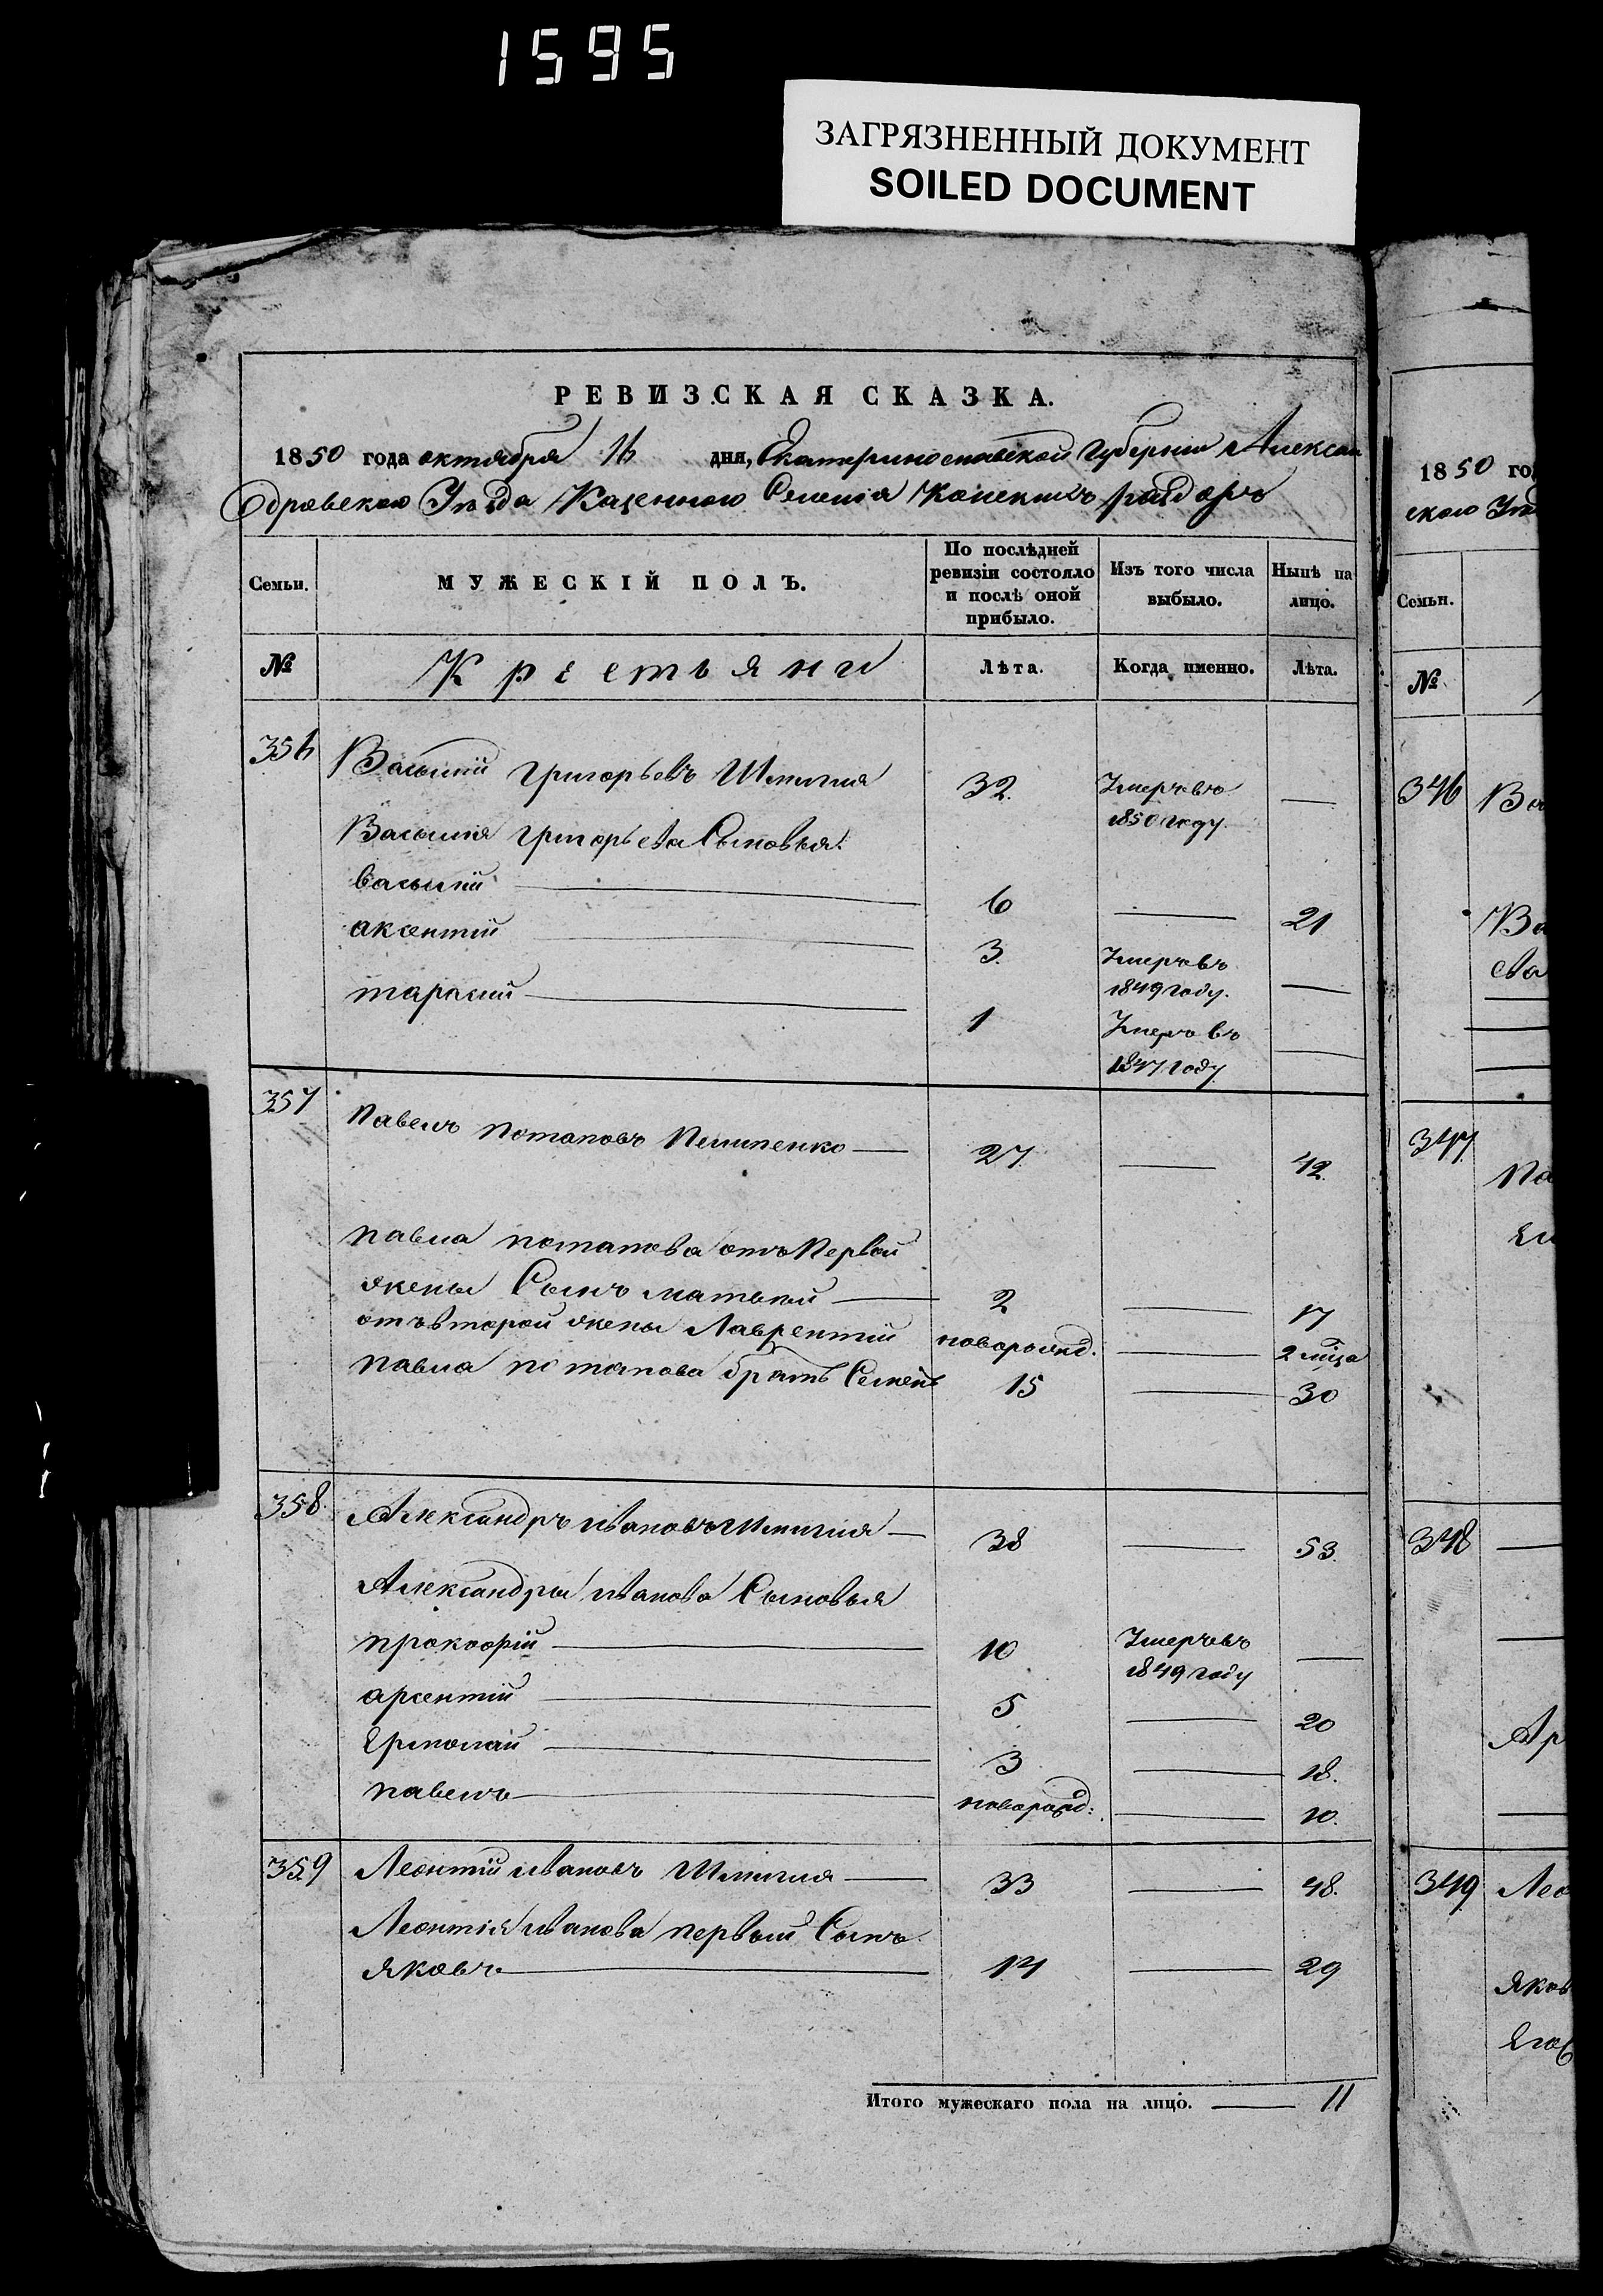 1595
ЗАГРЯЗНЕННЫЙ ДОКУМЕНТ
SOILED DOCUMENT
РЕВИЗСКАЯ СКАЗКА.
1850 года октября 16 дня, Екатеринославской Губернии Алексан
дровского Уезда Казенного Селения Конскихъ раздоръ
Семьи. МУЖЕСКІЙ ПОЛЪ. По послѣдней ревизіи состояло и послѣ оной прибыло. Изъ того числа выбыло. Нынѣ на лицо.
№ Крестьяне Лѣта. Когда именно. Лѣта.
356 Василий Григорьевъ Шмигля 32. Умеръ въ 1850 году.
Василия Григорьева Сыновья:
василий 6 21
аксентий 3. Умеръ въ 1849 году.
тарасий 1 Умеръ въ 1847 году.
357 Павелъ Потаповъ 27 42.
павла потапова отъ Первой
жены Сынъ матвей 2 17
отъ второй жены Лаврентий новорожд. 2 м͠ца
павла потапова братъ Семенъ 15 30
358 Александръ ивановъ Шмигля 38 53.
Александра иванова Сыновья
прокофий 10 Умеръ въ 1849 году
арсентий 5 20
Ермолай 3 18.
павелъ новорожд: 10.
359 Леонтий ивановъ Шмигля 33 48.
Леонтия иванова первый Сынъ
яковъ 14 29
Итого мужескаго пола на лицо. 11
1850 го
ского Уезд
Семьи.
№
346 Ва
Ва
ева
347
Па
348
Ар
349 Лео
яков